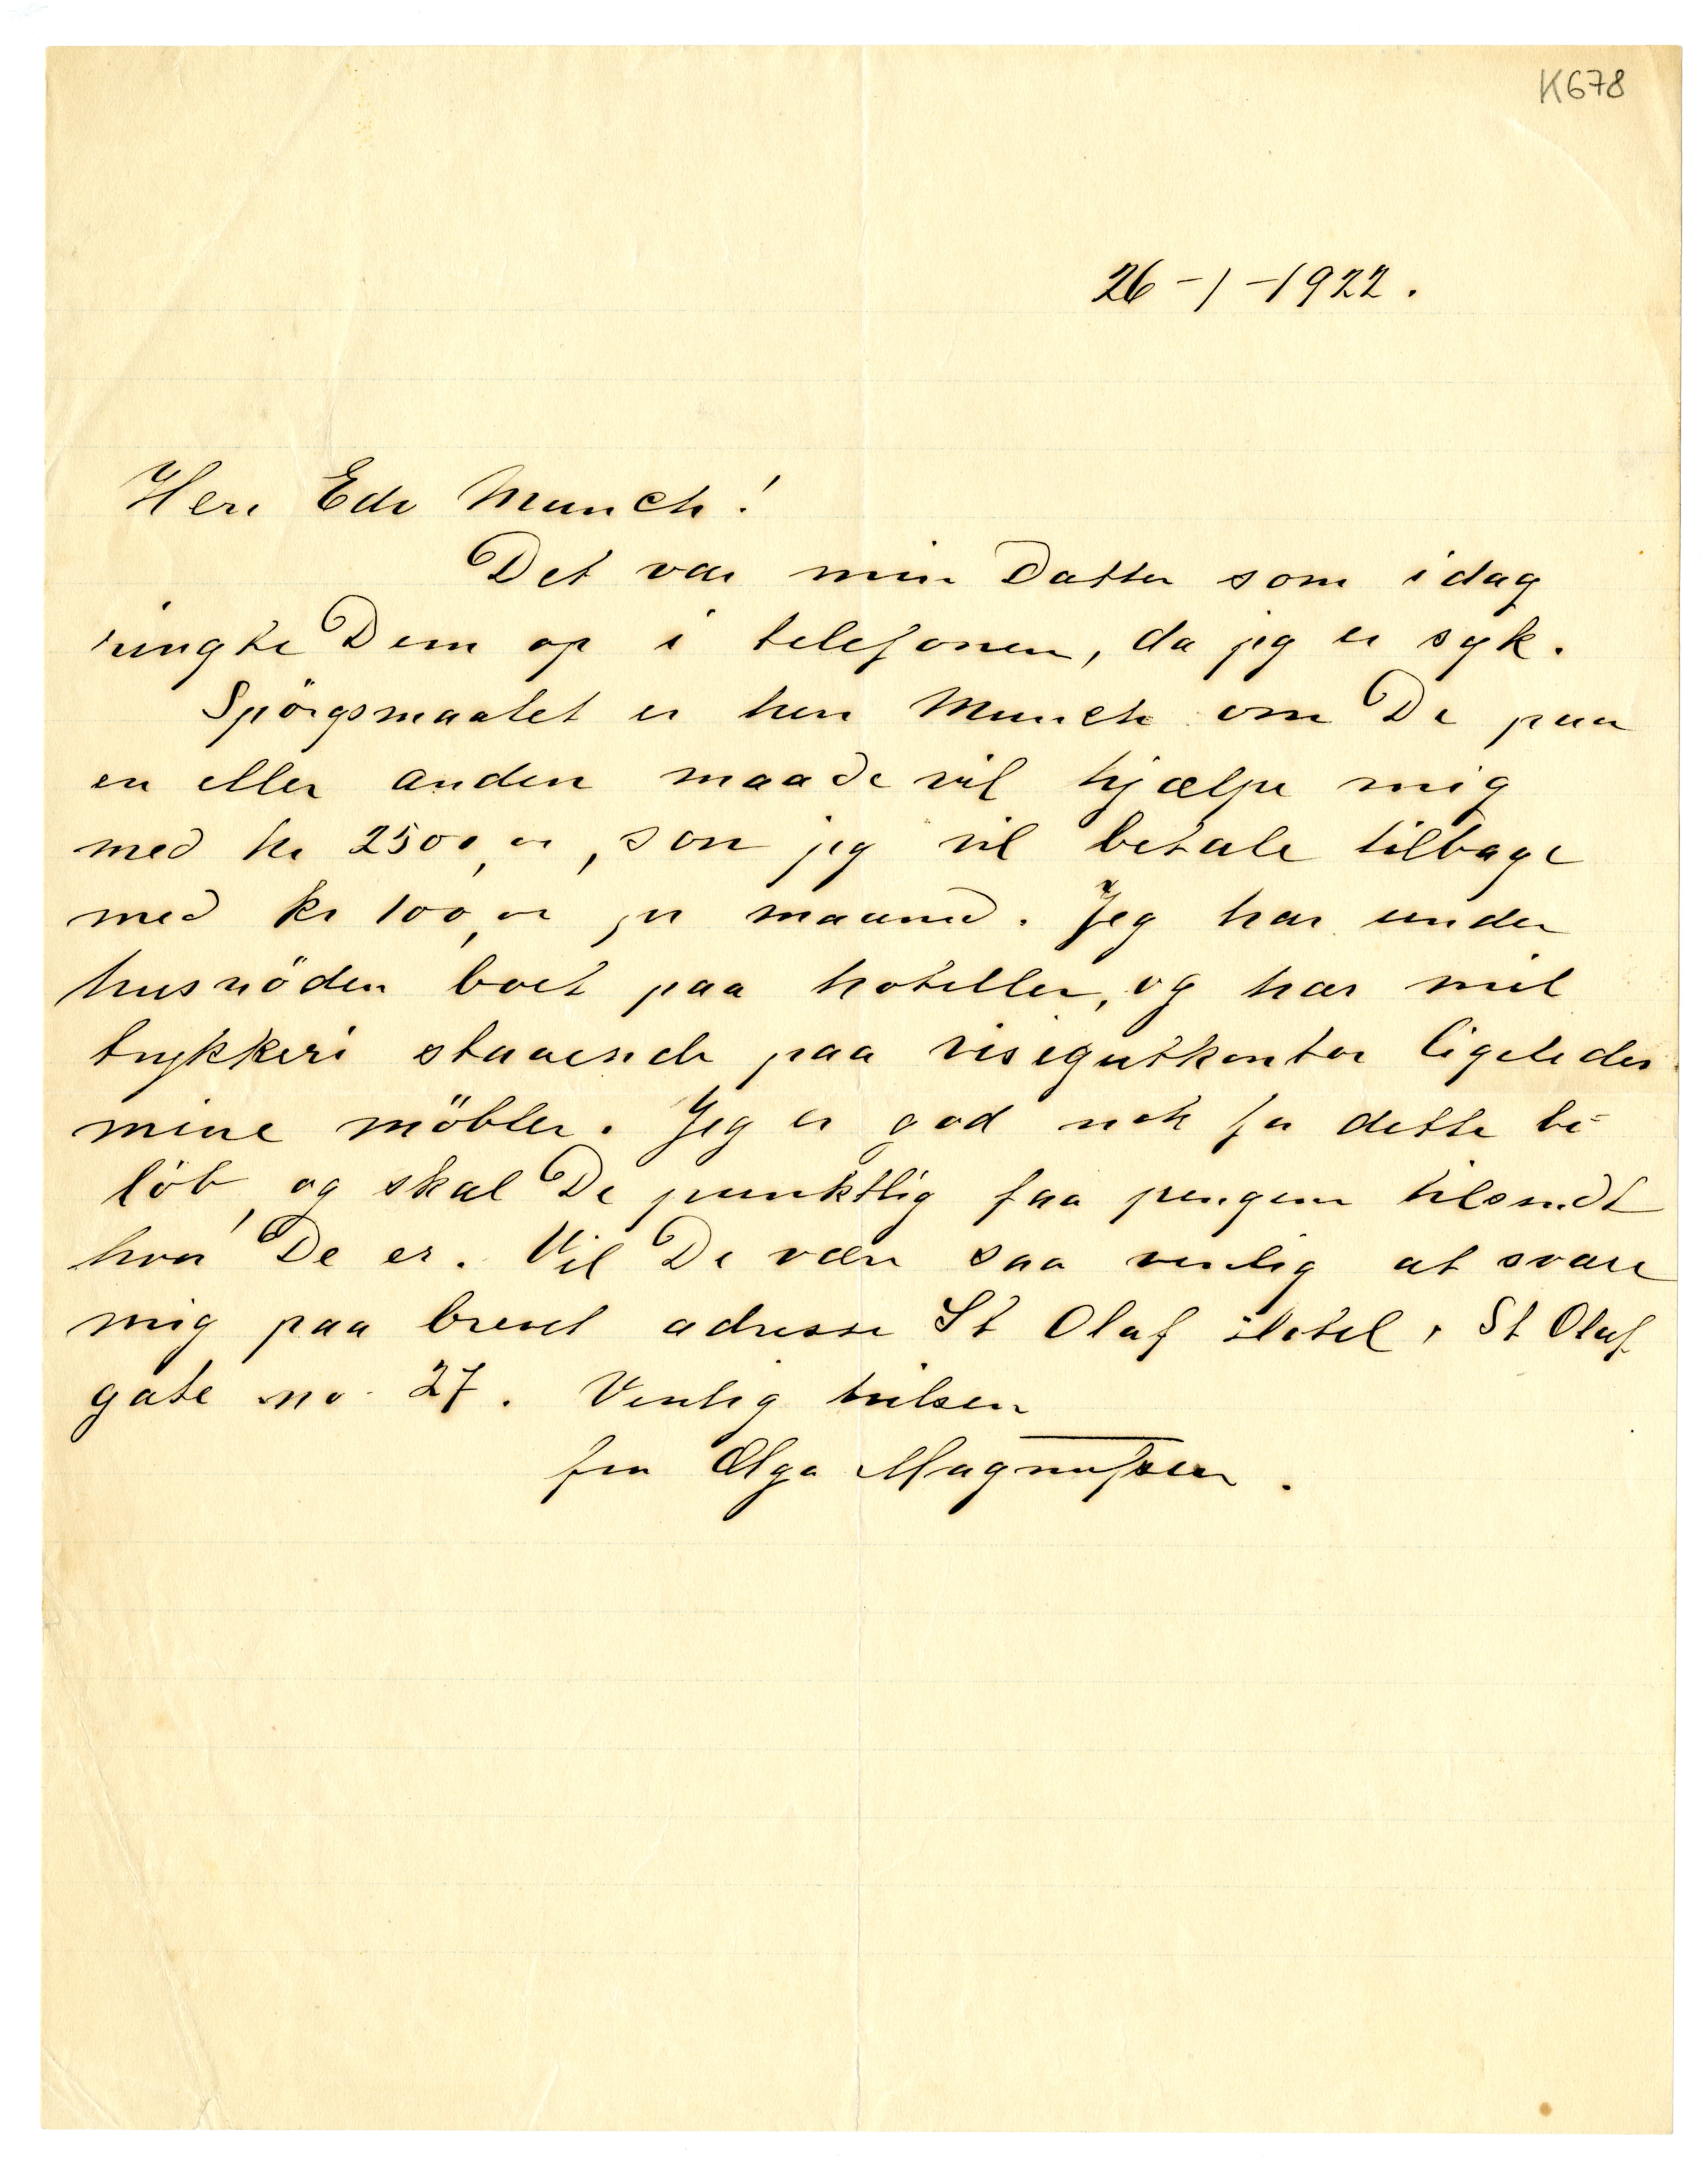 K678
26-1-1922.
Herr Edv Munch!
Det var min Datter som idag
ringte Dem op i telefonen, da jeg er syk.
Spörgsmaalet er herr Munch om De paa
en eller anden maade vil hjælpe mig
med kr 2500,oo, som jeg vil betale tilbage
med kr 100,oo pr maaned. Jeg har under
husnöden boet paa hoteller, og har mit
trykkeri staaende paa visegutkontor ligeledes
mine möbler. Jeg er god nok for dette be-
löb, og skal De punktlig faa pengene tilsendt
hvor De er. Vil De være saa venlig at svare
mig paa brevet adresse St Olaf Hotel, St Olaf
gate no 27. Venlig hilsen
fra Olga Magnussen.